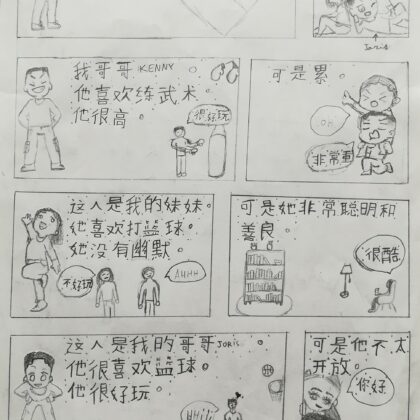 Joris
我哥哥 KENNY
他喜欢练武术。
他很高。
很好玩
可是累。
oh
非常重
这人是我的妹妹。
她喜欢打篮球。
她没有幽默。
不好玩
AUHH
可是她非常聪明和
善良。
很酷
这人是我的哥哥JORIS
他很喜欢篮球。
他很好玩。
可是他不太
开放。
你好